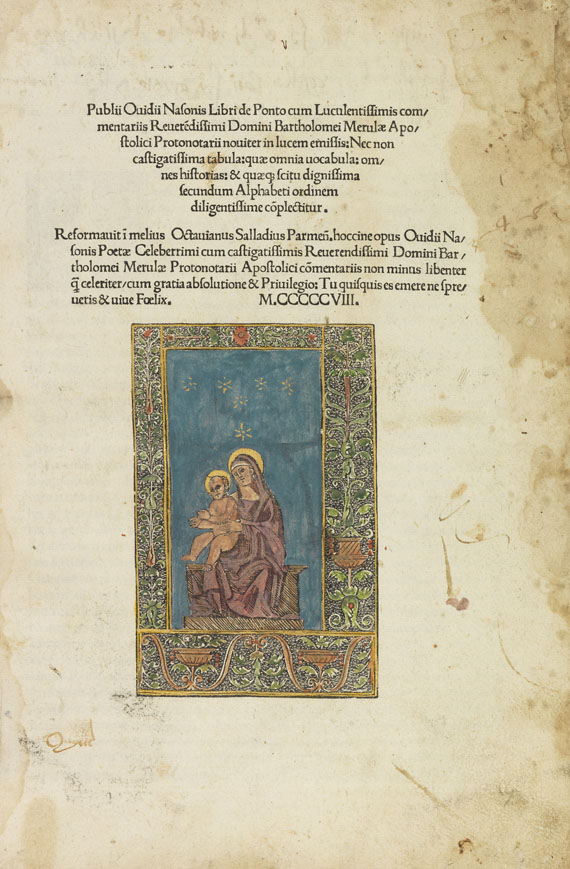 Publii Ouidii Nasonis Libri de Ponto cum Luculentissimis com/
mentariis Reuerēdissimi Domini Bartholomei Merulæ Apo/
stolici Protonotarii nouiter in lucem emissis: Nec non
castigatissima tabula: quæ omnia uocabula: om/
nes historias: & quæq; scitu dignissima
secundum Alphabeti ordinem
diligentissime cōplectitur.
Reformauit ī melius Octauianus Salladius Parmeñ. hoccine opus Ouidii Na/
sonis Poetæ Celeberrimi cum castigatissimis Reuerendissimi Domini Bar/
tholomei Merulæ Protonotarii Apostolici cōmentariis non minus libenter
q̄ celeriter/cum gratia absolutione & Priuilegio: Tu quisquis es emere ne spre/
ueris & uiue Fœlix. M.CCCCCVIII.